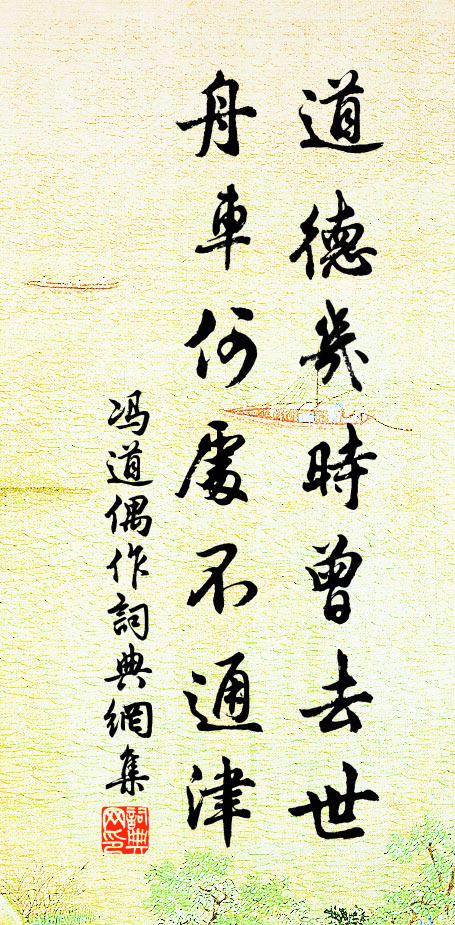 道德幾時曾去世
舟車何處不通津
冯道偶作詞典網集
詞典網印